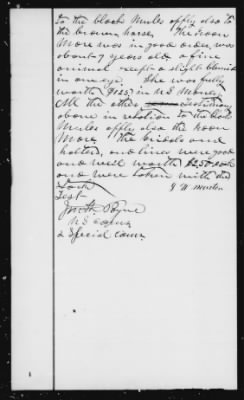 to the black Mules apply also to
the brown horse. The roan
Mare was in good order, was
about 7 years old, a fine
animal except a slight blemish
in one eye. She was fully
worth $125 in U.S. Money.
All the other testimony
above in relation to the
Mules apply also the roan
Mare. The bridle and
halters, and lines were good
and well worth $2.50 each
and were taken with the
Stock
Test
Payne
U S Comr
& Special Comr